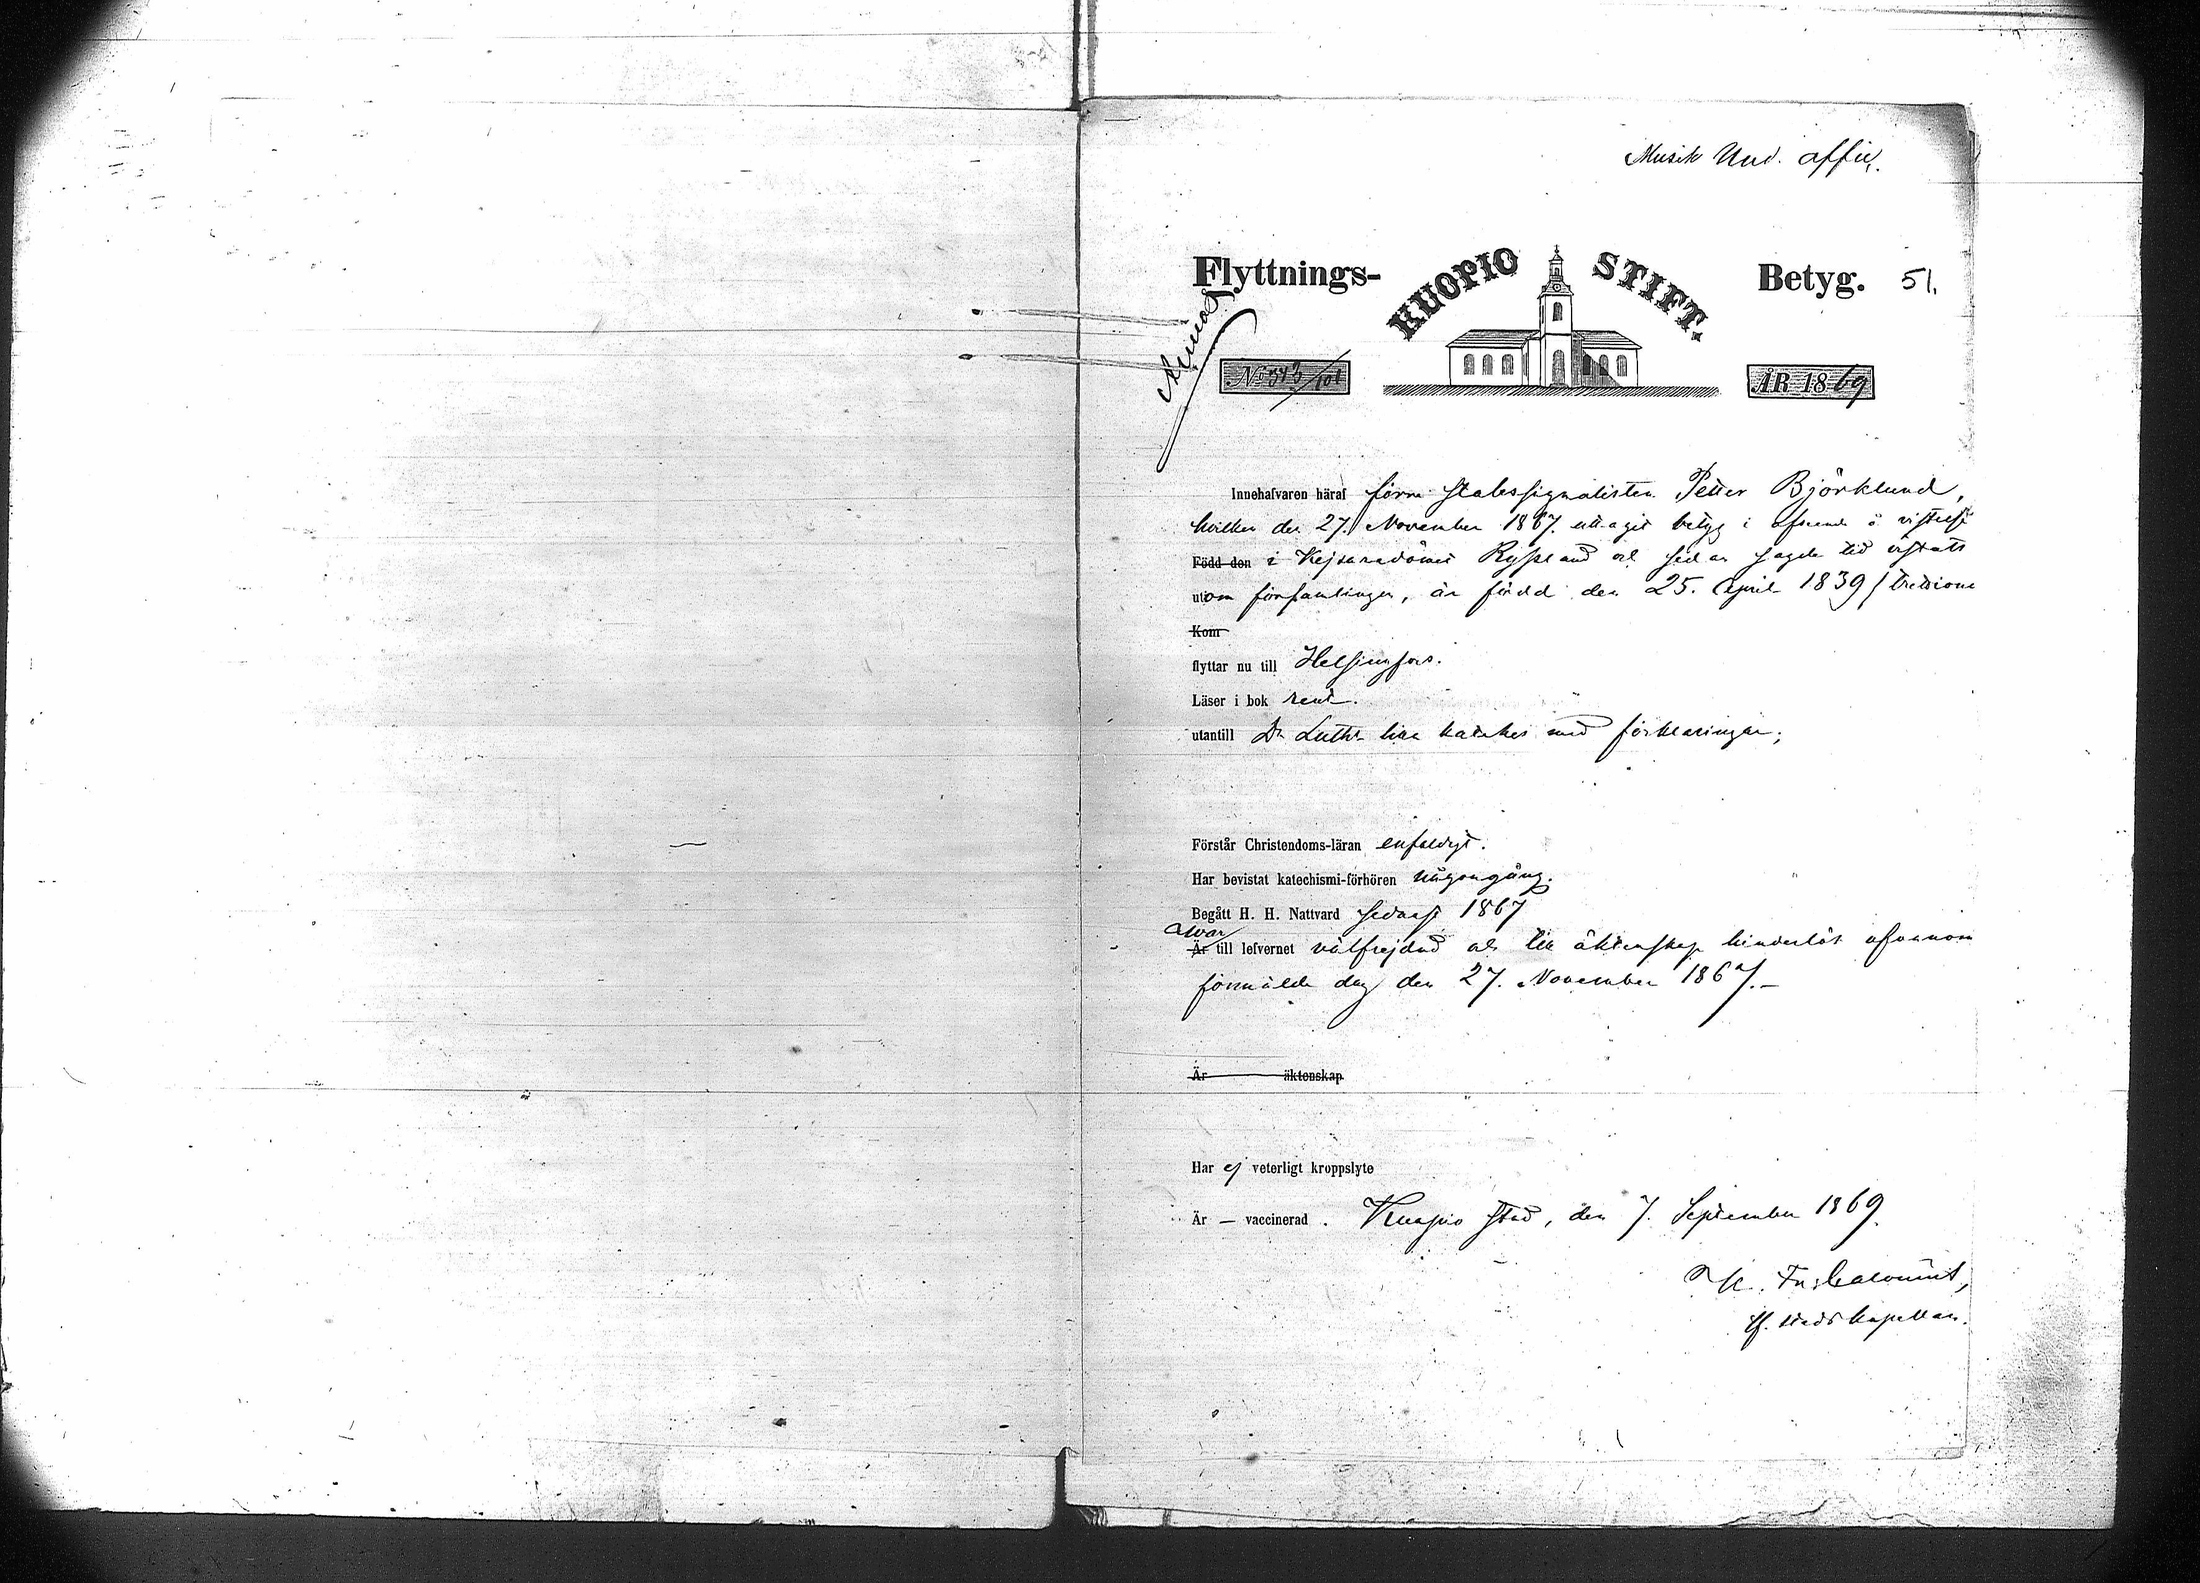 Musik Und. affic.
Flyttnings- KUOPIO STIFT. Betyg. 51.
No 343/101 ÅR 1869
Innehafvaren häraf förra Stabssignalisten Petter Björklund,
hvilken den 27. November 1867 uttagit betyg i afseende å vistelse
Född den i Kejsaredömet Ryssland och sedan sagde tid vistats
utom församlingen, är född den 25. April 1839 / trettionio
Kom
flyttar nu till Helsingfors.
Läser i bok rent.
utantill Dr Luth. lilla katekes med förklaringar;
Förstår Christendoms-läran enfaldigt.
Har bevistat katechismi-förhören någon gång.
Begått H. H. Nattvard sedast 1867
war
Är till lefvernet välfrejdad och till äktenskap hinderlös ofvannom
förmälde dag den 27. November 1867.-
Är äktenskap
Har ej veterligt kroppslyte
Är — vaccinerad. Kuopio stad, den 7. September 1869.
tf. stads kapellan.